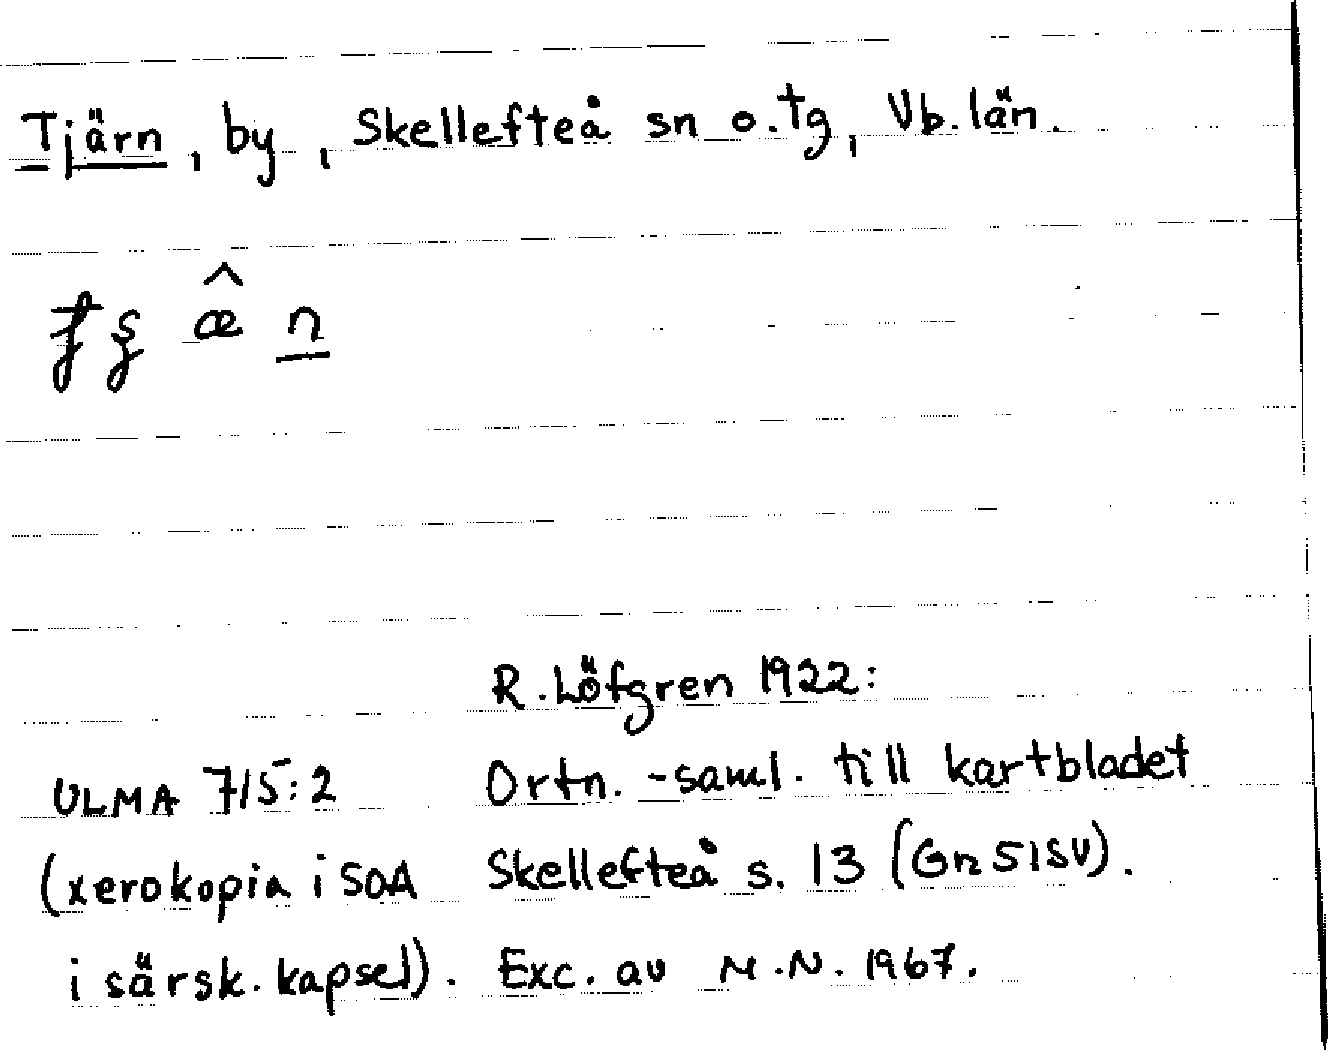 Tjärn, by, Skellefteå sn o. tg, Vb. län.
R. Löfgren 1922:
ULMA 715:2 Ortn.-saml. till kartbladet
(xerokopia i SOA Skellefteå s. 13 (Gn 51SV).
i särsk. kapsel). Exc. av M.N. 1967.